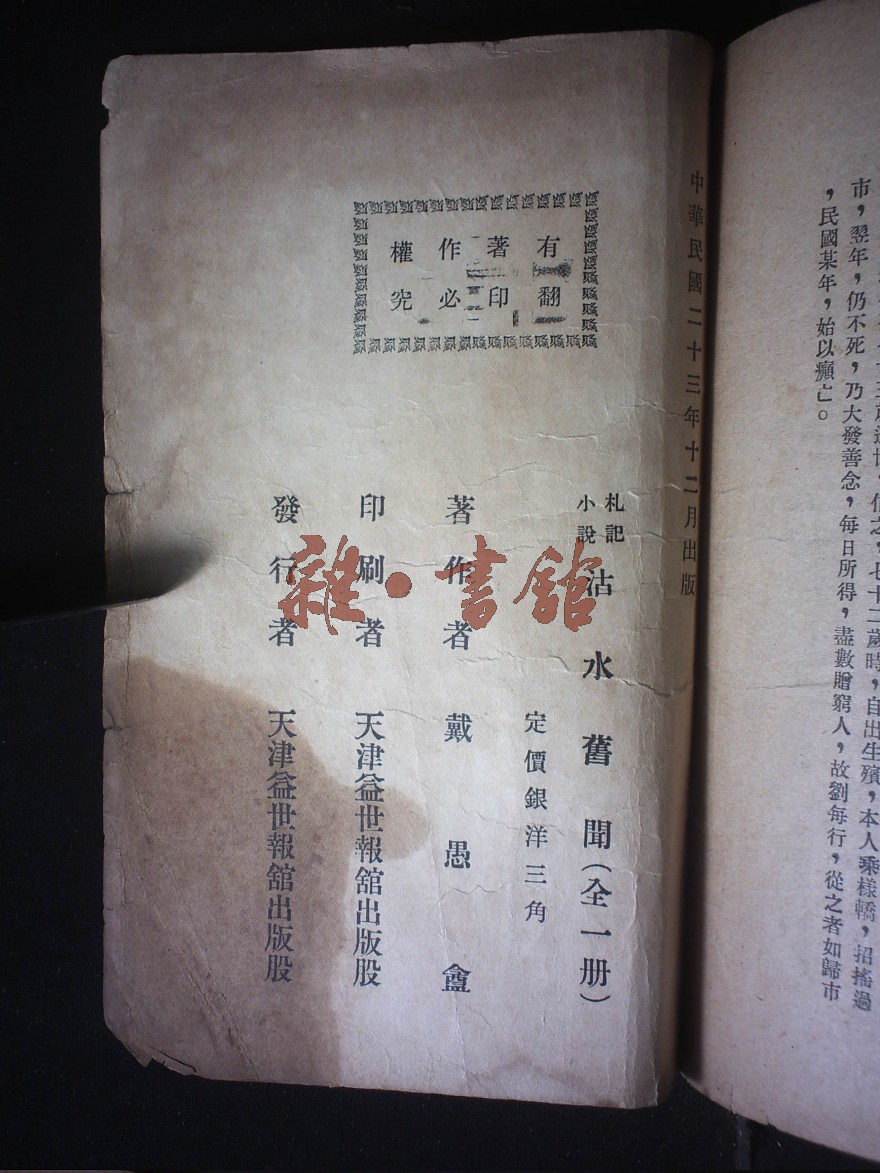 市，翌年，仍不死，乃大發善念，每日所得，盡數贈窮人，故劉每行，從之者如歸市
，民國某年，始以癲亡。
七十二歲時，自出生殯，本人乘樣轎，招搖過
中華民國二十三年十二月出版
有著作權
翻印必究
札記
小說
沽水舊聞（全一册）
定價銀洋三角
著作者　戴愚盦
印刷者　天津益世報舘出版股
發行者　天津益世報舘出版股
雜·書舘